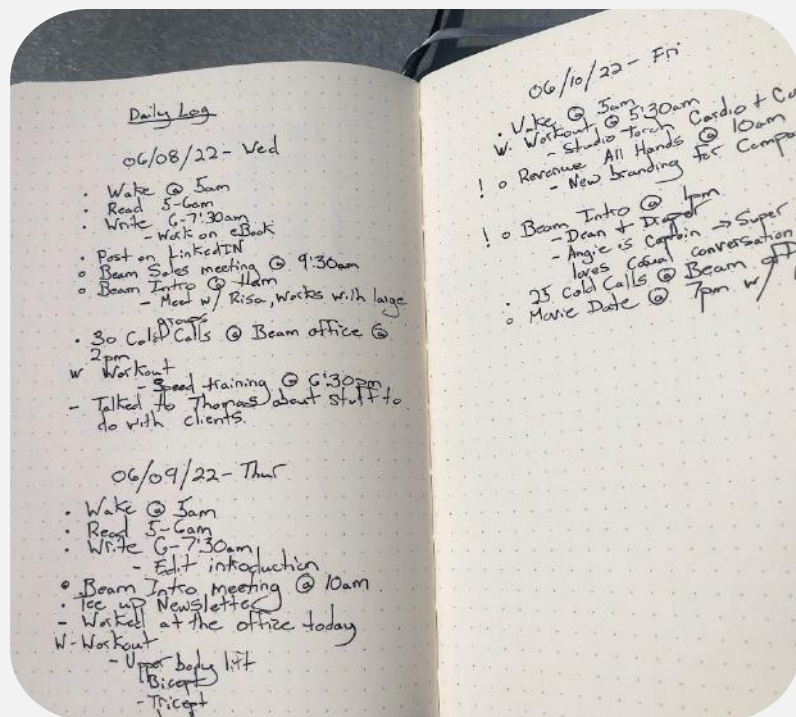 Daily Log
06/08/22 - Wed
· Wake @ 5am
· Read 5-6am
· Write 6-7:30am
- Work on eBook
· Post on LinkedIN
o Beam Sales meeting @ 9:30am
o Beam Intro @ 11am
- Meet w/ Risa, Works with large
groups
· 30 Cold Calls @ Beam office @
2pm
w Workout
- Speed training @ 6:30pm
- Talked to Thomas about stuff to
do with clients.
06/09/22 - Thur
· Wake @ 5am
· Read 5-6am
· Write 6-7:30am
- Edit introduction
o Beam Intro meeting @ 10am
· Tee up Newsletter
- Worked at the office today
W - Workout
- Upper body lift
Bicept
- Tricept
06/10/22 - Fri
· Wake @ 5am
W. Workout @ 5:30am
- Studio Torch Cardio +
! o Revenue All Hands @ 10am
- New branding for
! o Beam Intro @ 1pm
- Dean + Draper
- Angie is Captain → Super
loves casual conversation
· 25 Cold Calls @ Beam
o Movie Date @ 7pm w/